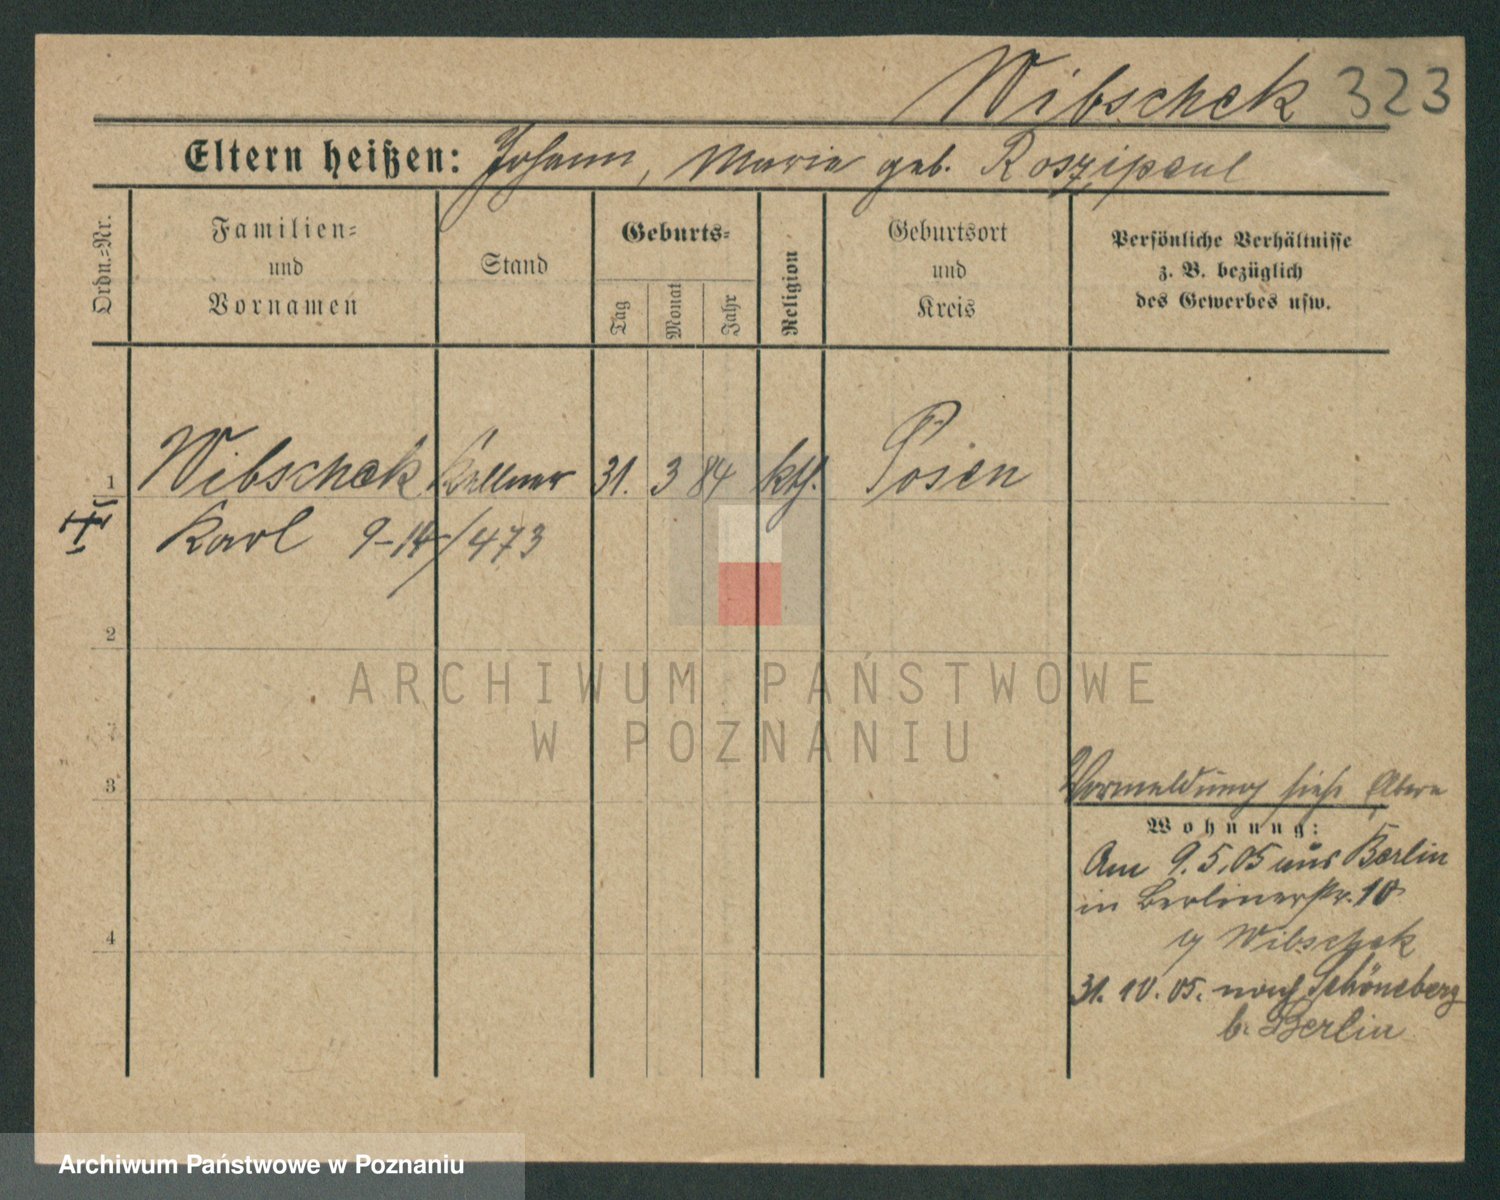 Wibschek 323
Eltern heißen: Johann, Maria geb. Roszipaul
Ordn.=Nr.
Familien=
und
Vornamen
Stand
Geburts=
Tag
Monat
Jahr
Religion
Geburtsort
und
Kreis
Persönliche Verhältnisse
z. B. bezüglich
des Gewerbes usw.
1 Wibschek Kellner 31. 3 84 kth. Posen
Karl 9-14/473
2
3
4
Vormeldung siehe Eltern
Wohnung:
Am 9.5.05 aus Berlin
in Berlinerstr. 10
Wibschek
31. 10. 05. nach Schöneberg
b. Berlin
ARCHIWUM PAŃSTWOWE
W POZNANIU
Archiwum Państwowe w Poznaniu